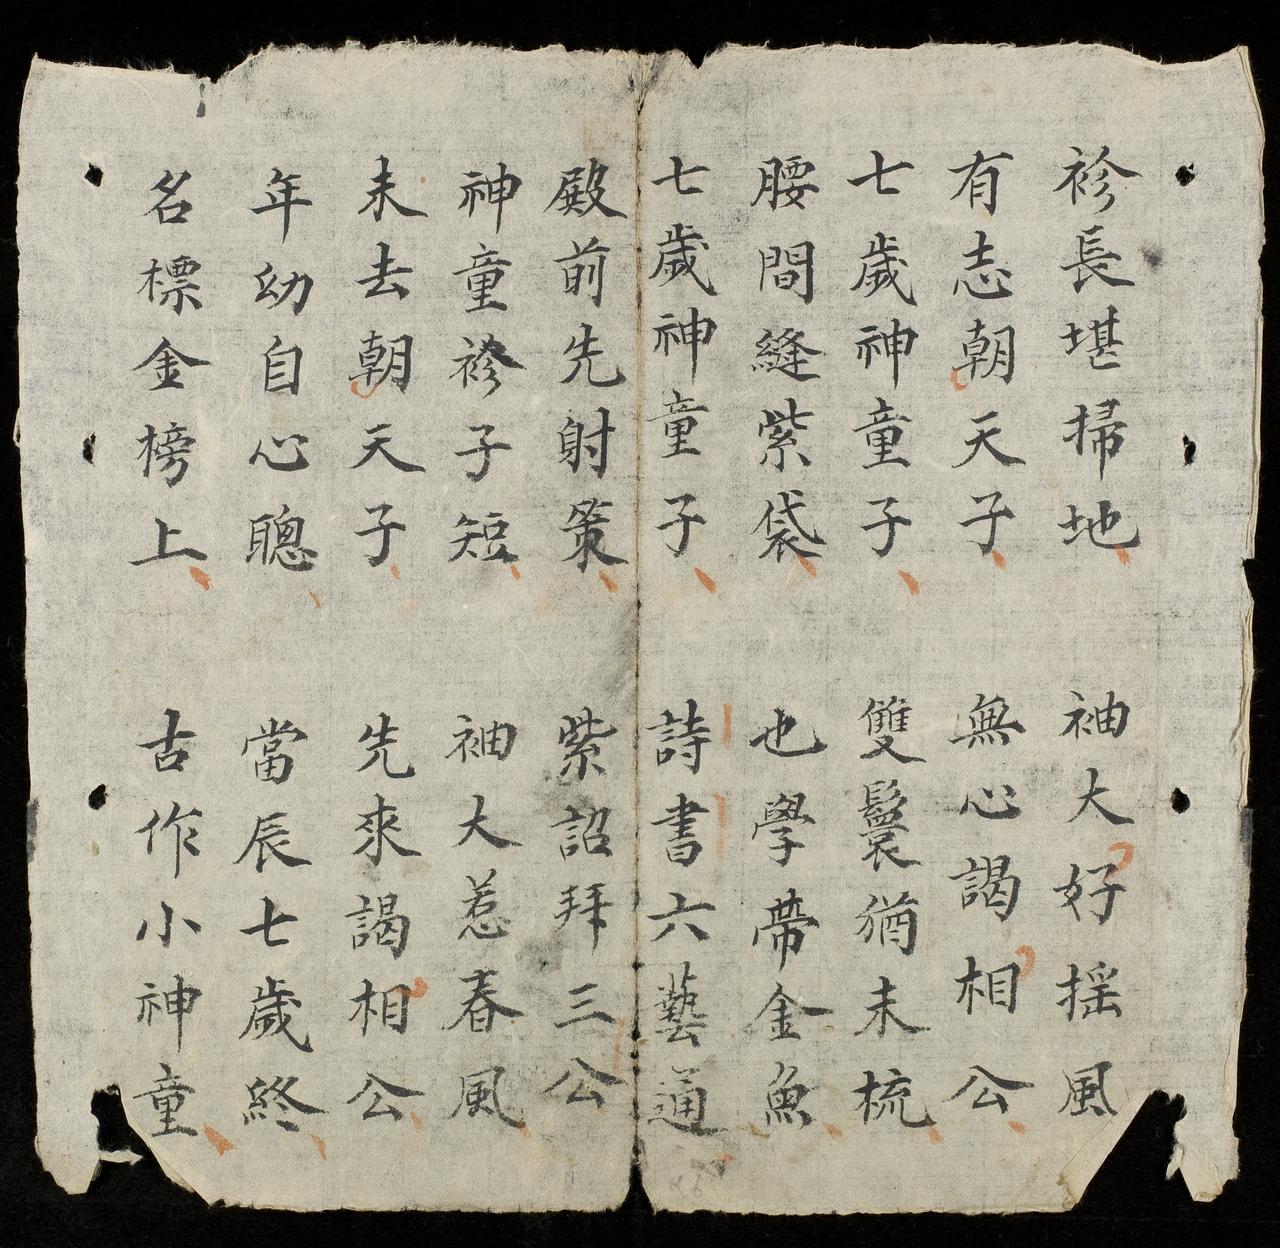 衫長堪掃地　袖大好摇風
有志朝天子　無心謁相公
七歲神童子　雙鬟猶未梳
腰間縫紫袋　也學帶金魚
七歲神童子　詩書六藝通
殿前先射策　紫詔拜三公
神童衫子短　袖大惹春風
未去朝天子　先來謁相公
年幼自心聰　當辰七歲終
名標金榜上　古作小神童